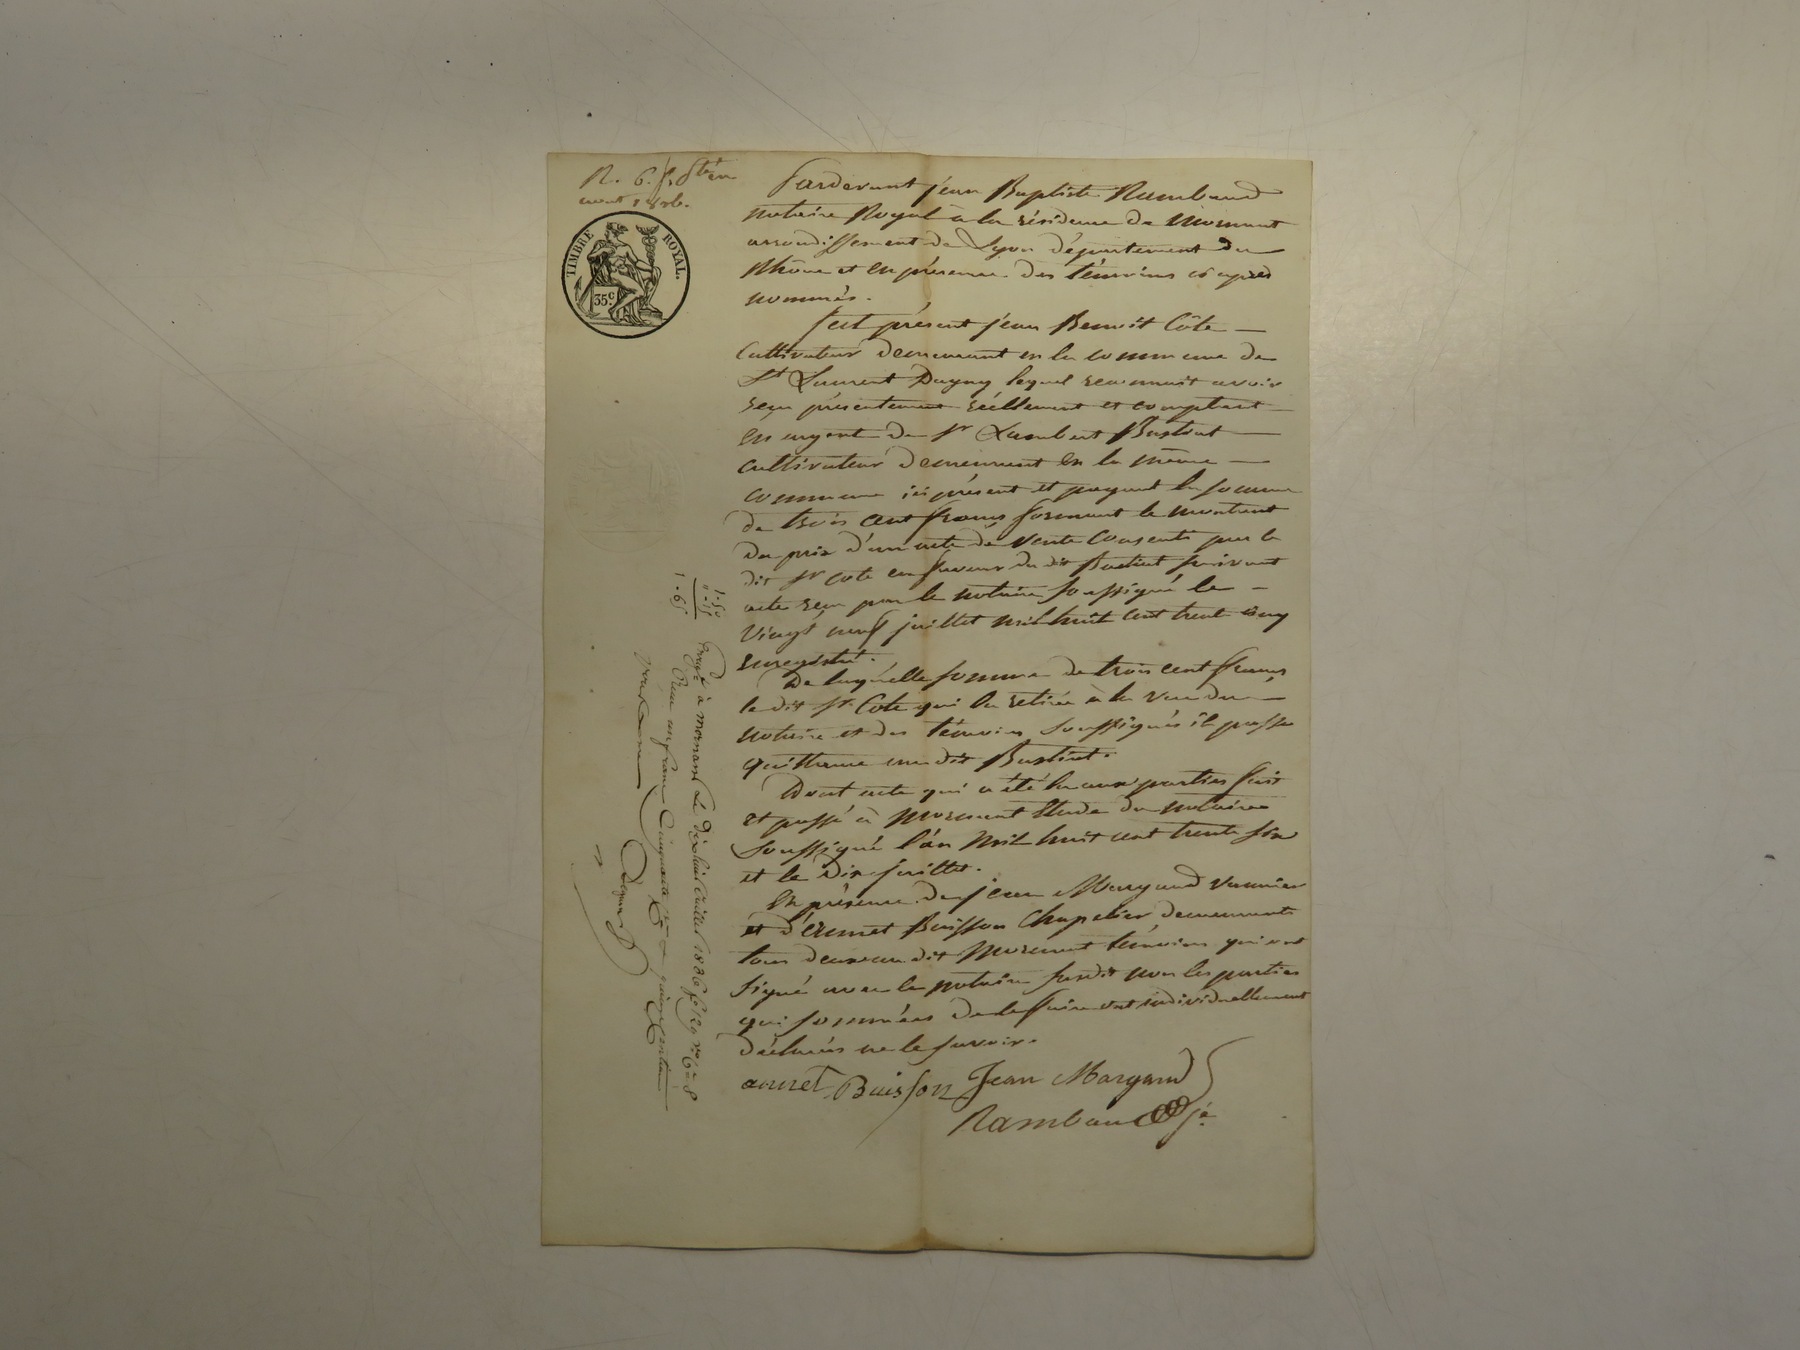 TIMBRE ROYAL.
35c.
Pardevant jean Baptiste Rambaud
notaire Royal à la résidence de Mornant
arrondissement de Lyon département du
Rhône et en présence des témoins ci après
nommés.
fut présent jean Benoît Côte
Cultivateur demeurant en la commune de
St Laurent Dagny lequel reconnait avoir
reçu présentement réellement et comptant
en argent de Sr Lambert Bastiat
cultivateur demeurant en la même
commune ici présent et payant la somme
de trois cent francs formant le montant
du prix d'un acte de vente Consenti par le
dit Sr Cote en faveur du dit Bastiat suivant
acte reçu par le notaire soussigné le
vingt neuf juillet mil huit cent trente cinq
enregistré.
De laquelle somme de trois cent francs
le dit Sr Cote qui la retirée à la vue du
notaire et des témoins soussignés il passe
quittance au dit Bastiat.
Dont acte qui a été lu aux parties fait
et passé à Mornant Etude du notaire
soussigné l'an Mil huit cent trente six
et le Dix juillet.
En présence de jean Margand vannier
et d'Ennet Buisson Chapelier demeurants
tous deux au dit Mornant témoins qui ont
signé avec le notaire susdit non les parties
qui sommées de le faire ont individuellement
déclarés ne le savoir.
Buisson Jean Margand
Rambaud
1.50
15
1.65
à mornant Le dix huit Juillet 1836
Reçu un franc Cinquante